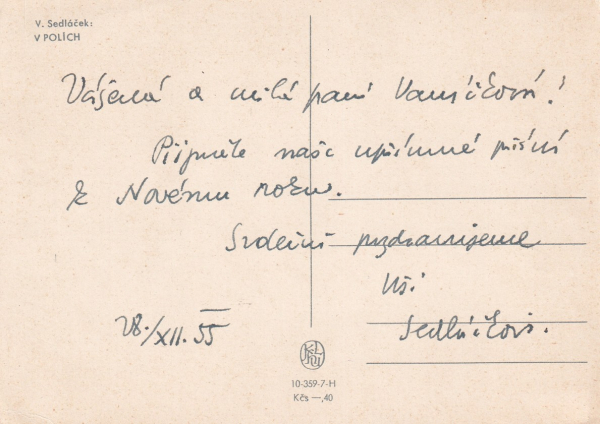 V. Sedláček:
V POLÍCH
Vážená a milá paní Vaníčková!
Přijměte naše upřímné přání
k Novému roku.
Srdečně pozdravujeme
Vaši
Sedláčkovi.
28./XII. 55
10-359-7-H
Kčs —,40